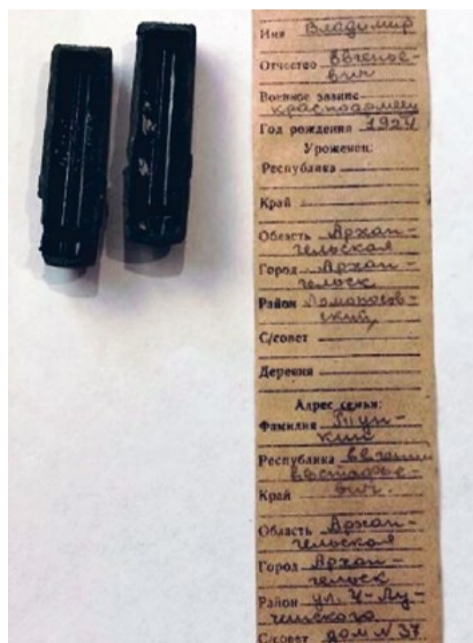 Имя Владимир
Отчество Евгенье-
вич
Военное звание
краснофлотец
Год рождения 1924
Уроженец:
Республика
Край
Область Архан-
гельская
Город Архан-
гельск
Район Ломоносов-
ский
С/совет
Деревня
Адрес семьи:
Фамилия
Республика Евгений
Евстафье-
Край вич.
Область Архан-
гельская
Город Архан-
гельск
Район ул. Ч-Лу-
чинского
С/совет дом N 37